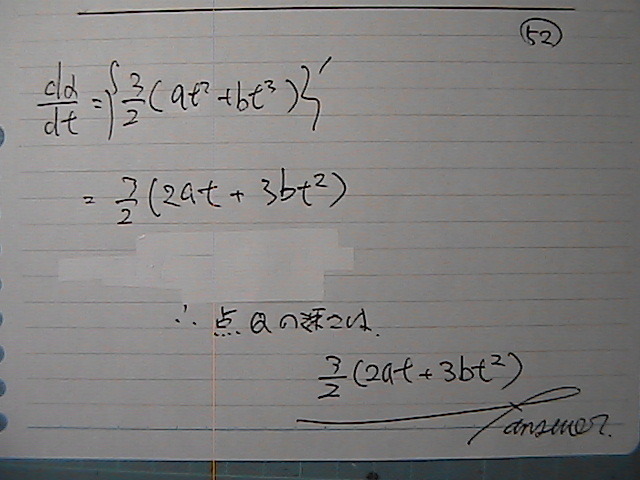 52
dα/dt = {3/2(at²+bt³)}′
= 3/2(2at + 3bt²)
∴ 点Qの速さは.
3/2(2at+3bt²)
answer.